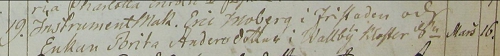 19. Instrument Mak. Eric Moberg i Fristaden och
Enkan Brita Andersdotter i Wallby Kloster Sn Mars 16